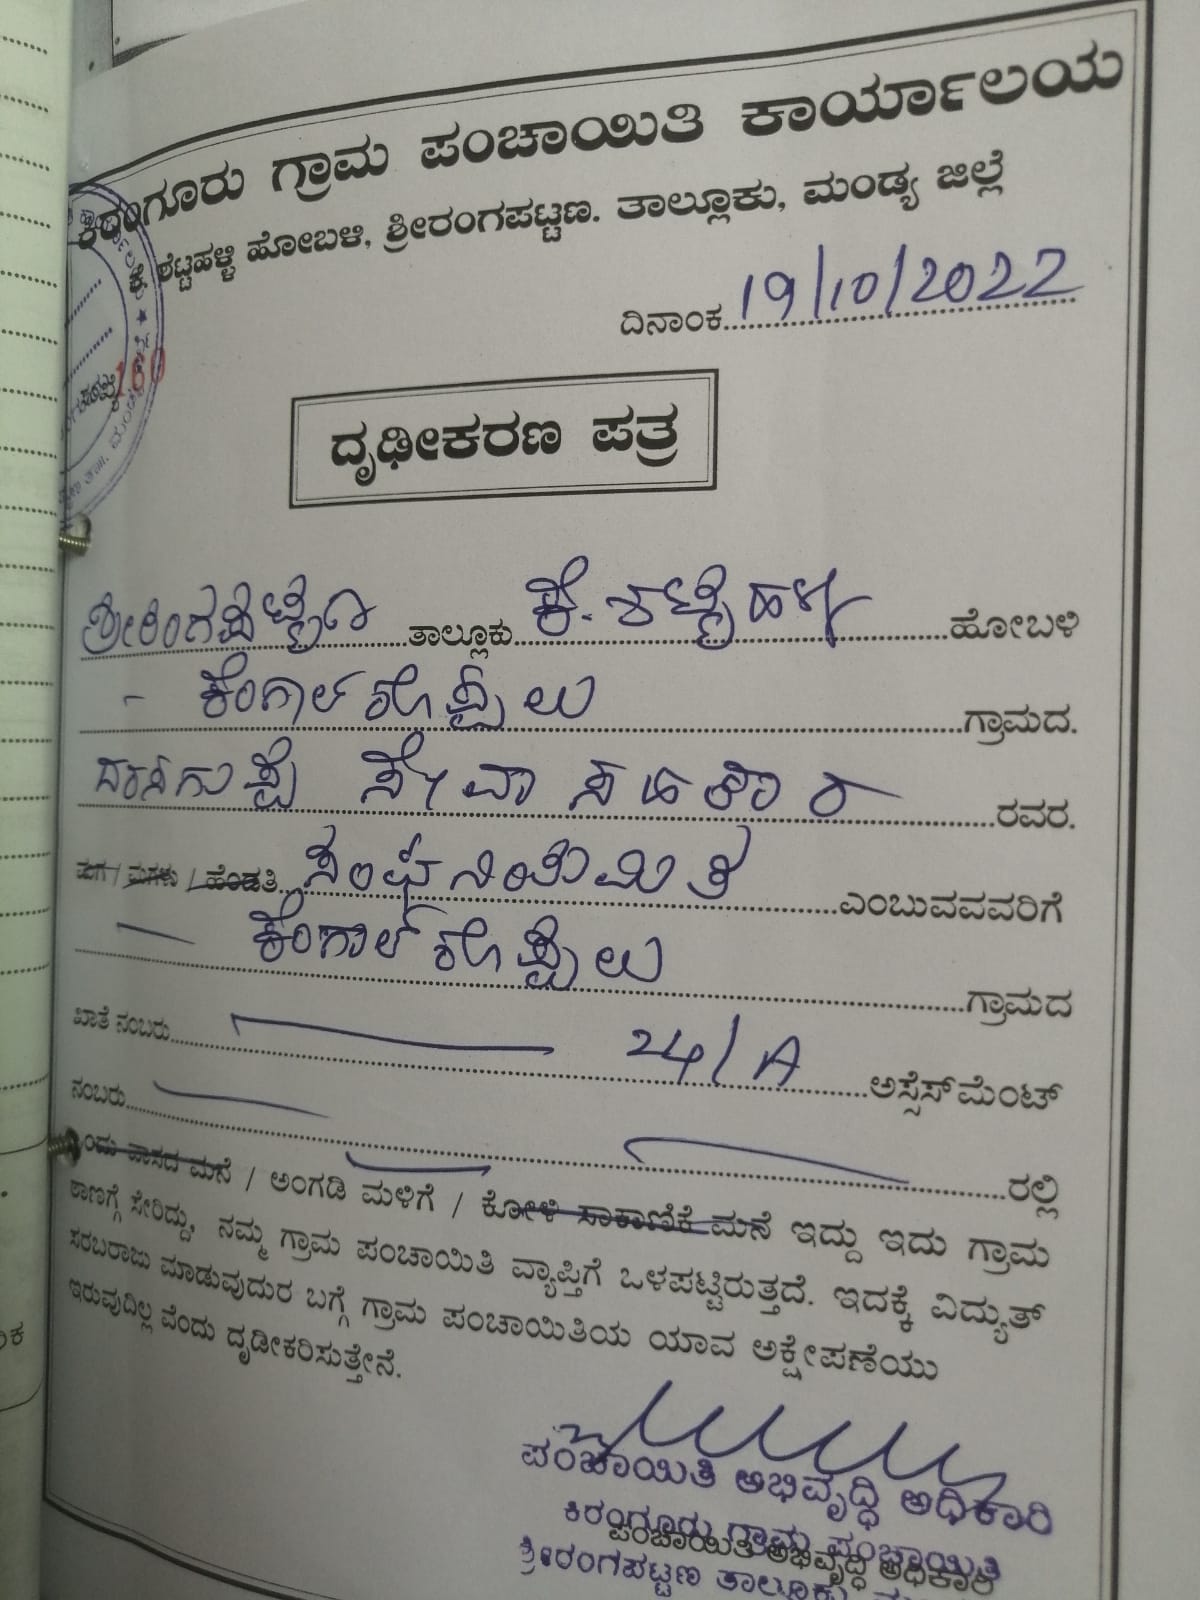 ಕಿರಂಗೂರು ಗ್ರಾಮ ಪಂಚಾಯಿತಿ ಕಾರ್ಯಾಲಯ
ಕೆ ಶೆಟ್ಟಹಳ್ಳಿ ಹೋಬಳಿ, ಶ್ರೀರಂಗಪಟ್ಟಣ. ತಾಲ್ಲೂಕು, ಮಂಡ್ಯ ಜಿಲ್ಲೆ
ದಿನಾಂಕ 19/10/2022
ಸಂಖ್ಯೆ 160
ದೃಢೀಕರಣ ಪತ್ರ
ಶ್ರೀರಂಗಪಟ್ಟಣ ತಾಲ್ಲೂಕು ಕೆ. ಶೆಟ್ಟಿಹಳ್ಳಿ ಹೋಬಳಿ
- ಕೆಂಗಾಲ್ ಕೊಪ್ಪಲು ಗ್ರಾಮದ.
ದರಸಗುಪ್ಪೆ ಸೇವಾ ಸಹಕಾರ ರವರ.
ಮಗ / ಮಗಳು / ಹೆಂಡತಿ ಸಂಘ ನಿಯಮಿತ ಎಂಬುವವವರಿಗೆ
ಕೆಂಗಾಲ್ ಕೊಪ್ಪಲು ಗ್ರಾಮದ
ಖಾತೆ ನಂಬರು 24/A ಅಸ್ಸೆಸ್‌ಮೆಂಟ್
ನಂಬರು ರಲ್ಲಿ
ಒಂದು ವಾಸದ ಮನೆ / ಅಂಗಡಿ ಮಳಿಗೆ / ಕೋಳಿ ಸಾಕಾಣಿಕೆ ಮನೆ ಇದ್ದು ಇದು ಗ್ರಾಮ
ಠಾಣಗ್ಗೆ ಸೇರಿದ್ದು, ನಮ್ಮ ಗ್ರಾಮ ಪಂಚಾಯಿತಿ ವ್ಯಾಪ್ತಿಗೆ ಒಳಪಟ್ಟಿರುತ್ತದೆ. ಇದಕ್ಕೆ ವಿದ್ಯುತ್
ಸರಬರಾಜು ಮಾಡುವುದುರ ಬಗ್ಗೆ ಗ್ರಾಮ ಪಂಚಾಯಿತಿಯ ಯಾವ ಅಕ್ಷೇಪಣೆಯು
ಇರುವುದಿಲ್ಲ ವೆಂದು ದೃಡೀಕರಿಸುತ್ತೇನೆ.
ಪಂಚಾಯಿತಿ ಅಭಿವೃದ್ಧಿ ಅಧಿಕಾರಿ
ಕಿರಂಗೂರು ಗ್ರಾಮ ಪಂಚಾಯಿತಿ
ಪಂಚಾಯಿತಿ ಅಭಿವೃದ್ಧಿ ಅಧಿಕಾರಿ
ಶ್ರೀರಂಗಪಟ್ಟಣ ತಾಲ್ಲೂಕು